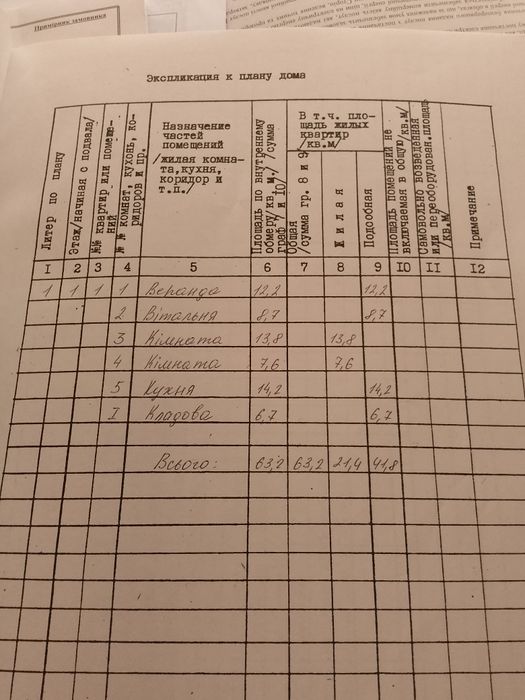 Примірник замовника
Экспликация к плану дома
Литер по плану
Этаж/начиная с подвала/
№№ квартир или помеще-
ния
№ № комнат, кухонь, ко-
ридоров и пр.
Назначение
частей
помещений
/жилая комна-
та,кухня,
коридор и
т.п./
Площадь по внутреннему
обмеру/кв.м./ /сумма
граф 7 и 10/
В т.ч. пло-
щадь жилых
квартир
/кв.м/
Общая
/сумма гр. 8 и 9/
Жилая
Подсобная
Площадь помещений не
включаемая в общую/кв.м/
Самовольно возведенная
или переоборудован.площадь
/кв.м/
Примечание
I 2 3 4 5 6 7 8 9 IO II I2
1 1 1 1 Веранда 12,2 12,2
2 Вітальня 8,7 8,7
3 Кімната 13,8 13,8
4 Кімната 7,6 7,6
5 Кухня 14,2 14,2
I Кладова 6,7 6,7
Всього: 63,2 63,2 21,4 41,8